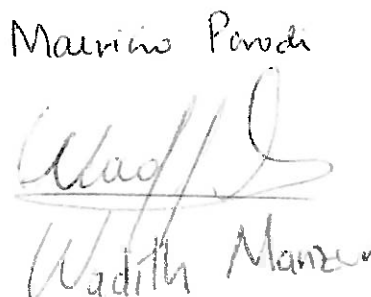 Mauricio Parodi
Wadith Manzur